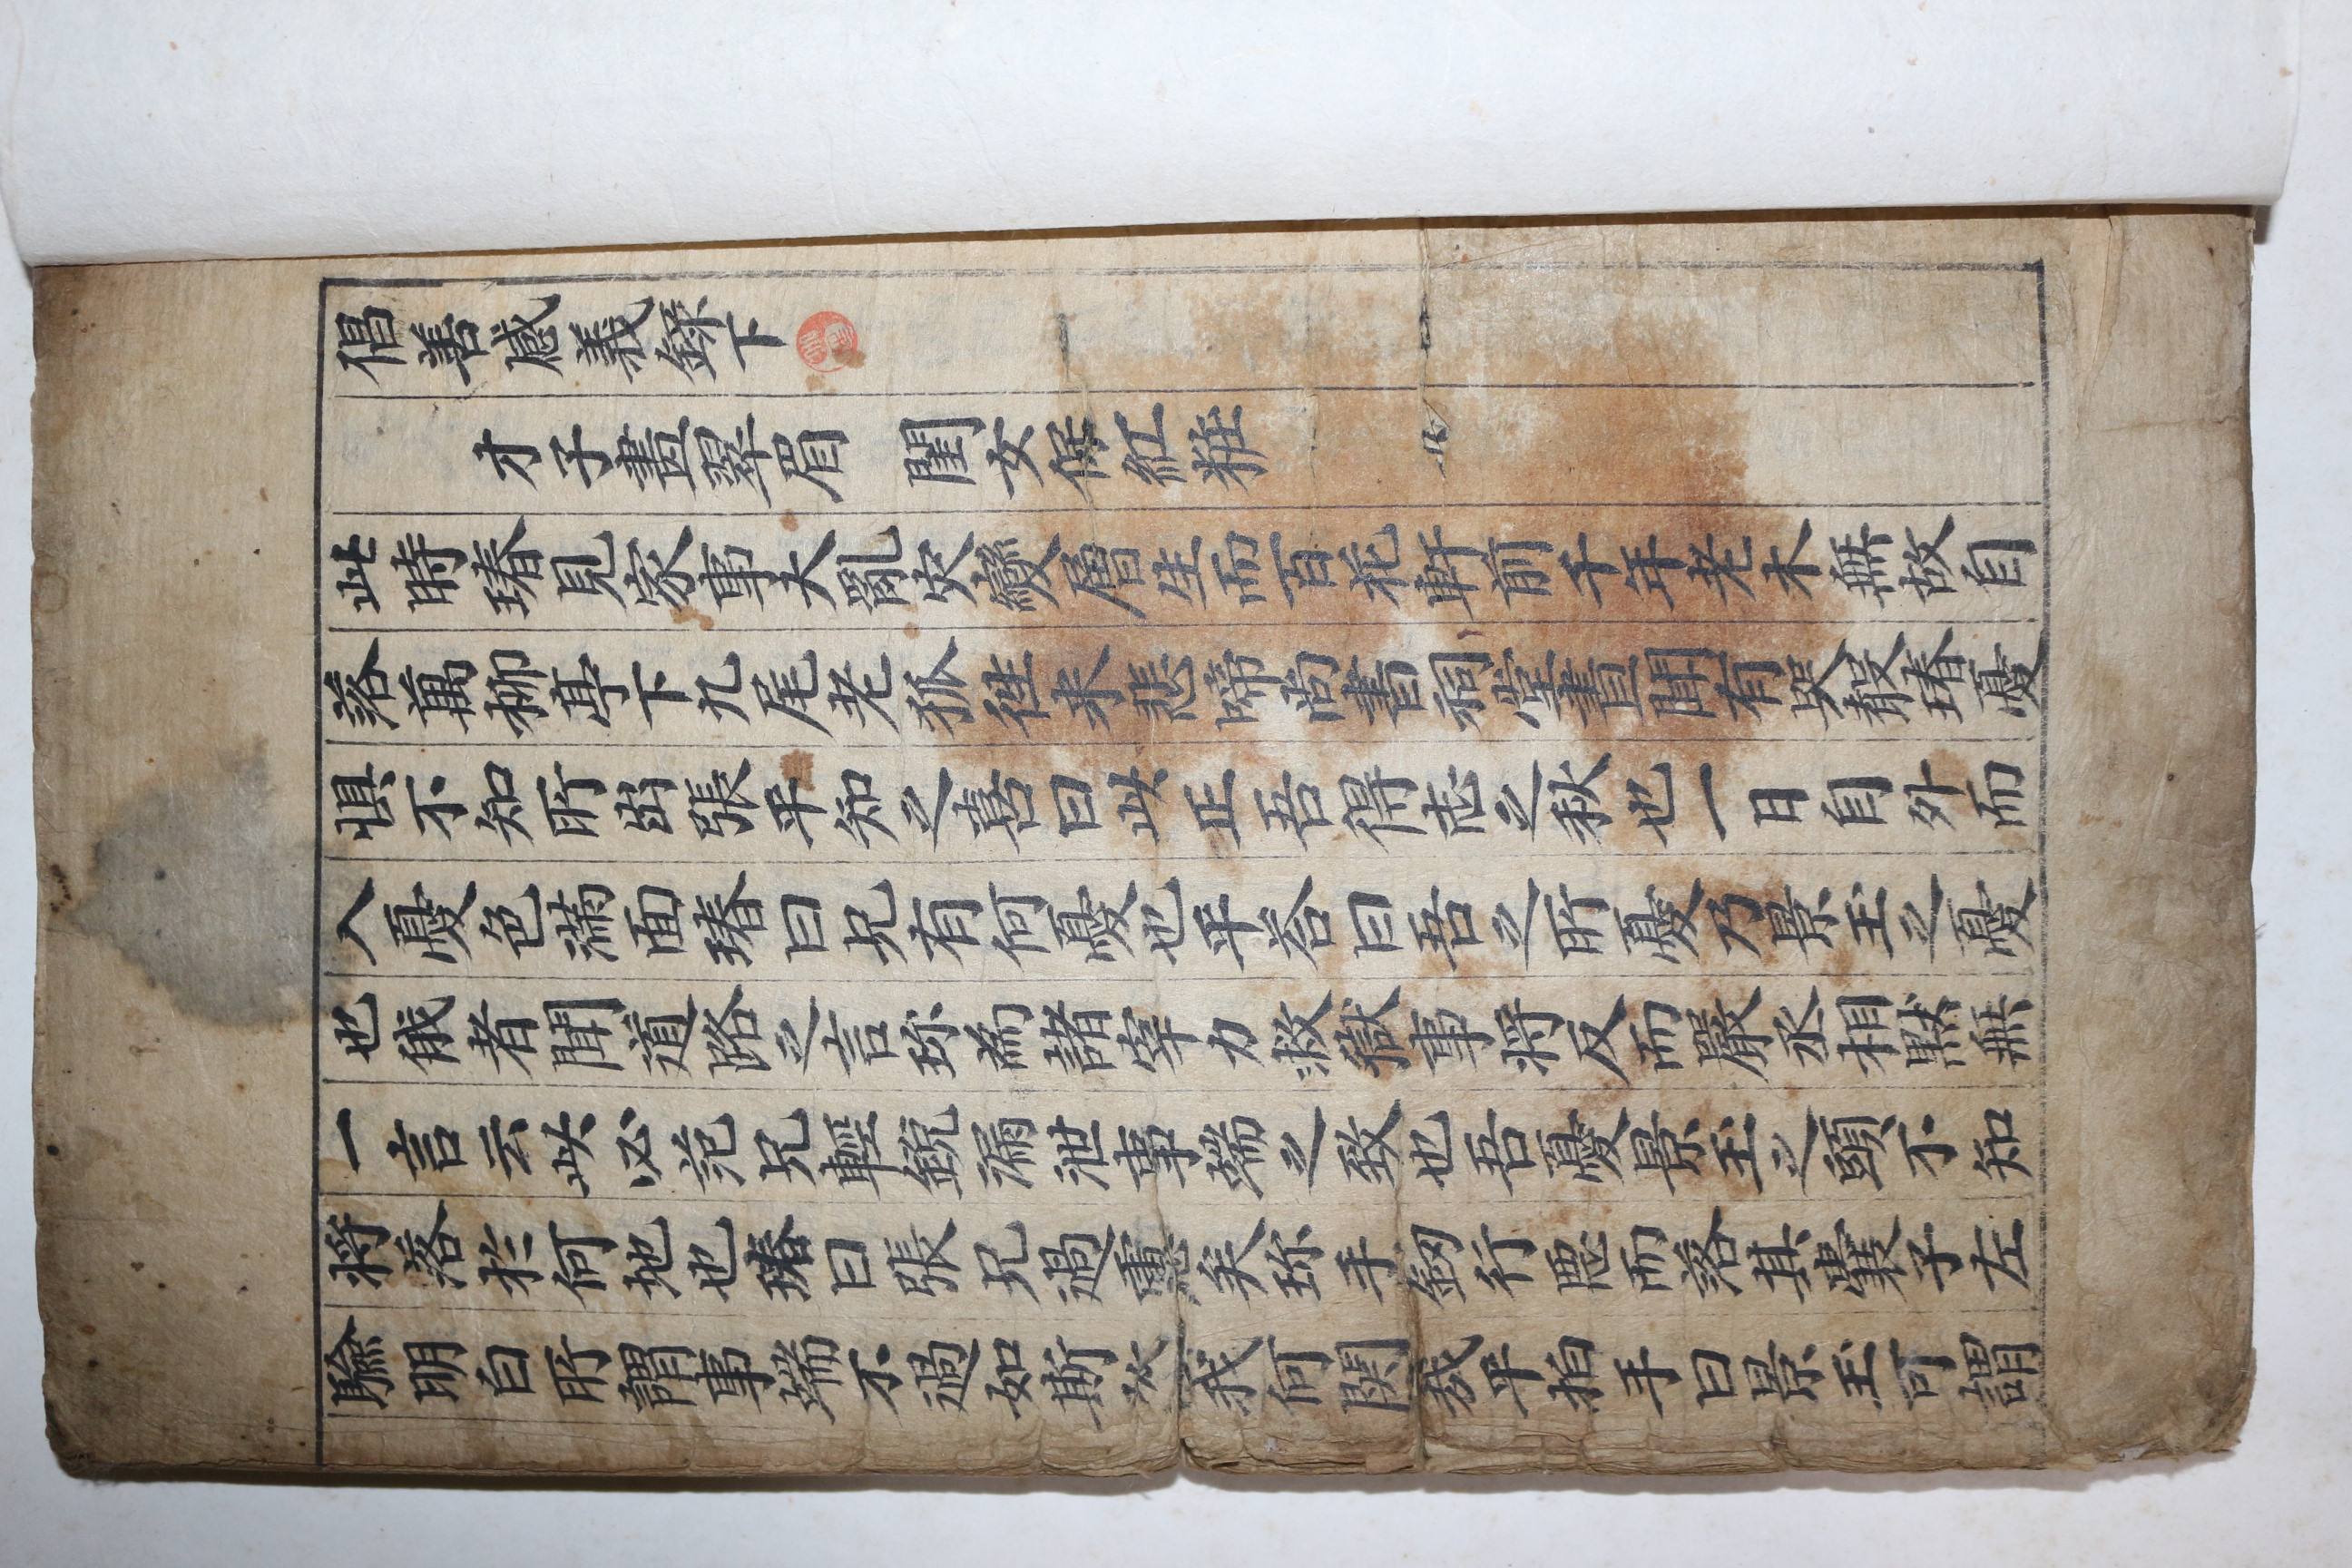 倡善感義錄下
才子畫翠眉　閨女保紅粧
此時瑃見家事大亂灾變層生而百花軒前千年老木無故自
落萬柳亭下九尾老狐徃来悲啼尚書祠堂晝聞有哭聲瑃憂
惧不知所出張平知之喜曰此正吾得志之秋也一日自外而
入憂色滿面瑃曰兄有何憂也平答曰吾之所憂乃景玉之憂
也俄者聞道路之言珎為諸宰力救獄事将反而嚴丞相默無
一言云此必范兄輕銳漏泄事端之致也吾憂景玉之頭不知
将落於何地也瑃曰張兄過慮矣珎手釰行悪而落其囊子左
驗明白所謂事端不過如斯於我何関哉平拍手曰景玉可謂